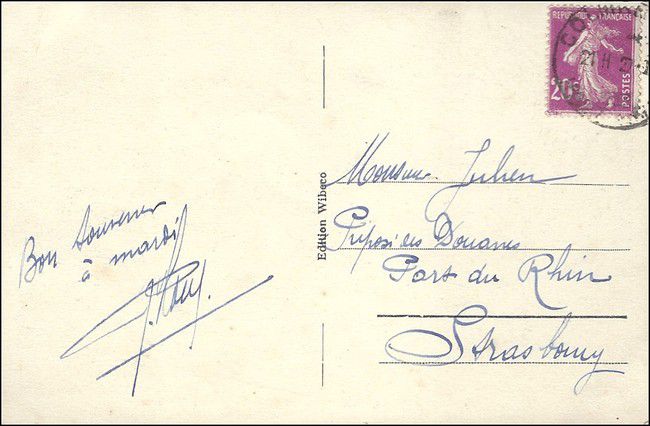 Bon Souvenir
à mardi
Edition Wibeco
RÉPUBLIQUE FRANÇAISE
20c
POSTES
21 II
Monsieur Julien
Préposé des Douanes
Port du Rhin
Strasbourg